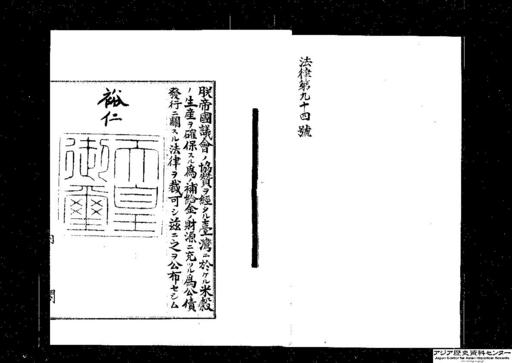 法律第九十四號
朕帝國議會ノ協贊ヲ經タル臺灣ニ於ケル米穀
ノ生産ヲ確保スル爲ノ補給金ノ財源ニ充ツル爲公債
發行ニ關スル法律ヲ裁可シ玆ニ之ヲ公布セシム
裕仁
天皇
御璽
内
閣
アジア歴史資料センター
Japan Center for Asian Historical Records